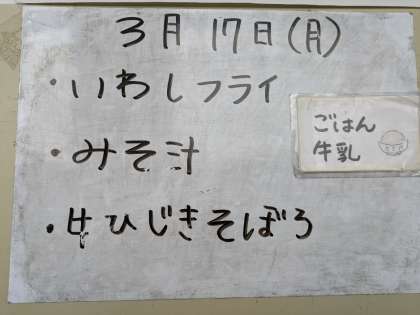 3月17日(月)
・いわしフライ
・みそ汁
・サひじきそぼろ
ごはん
牛乳